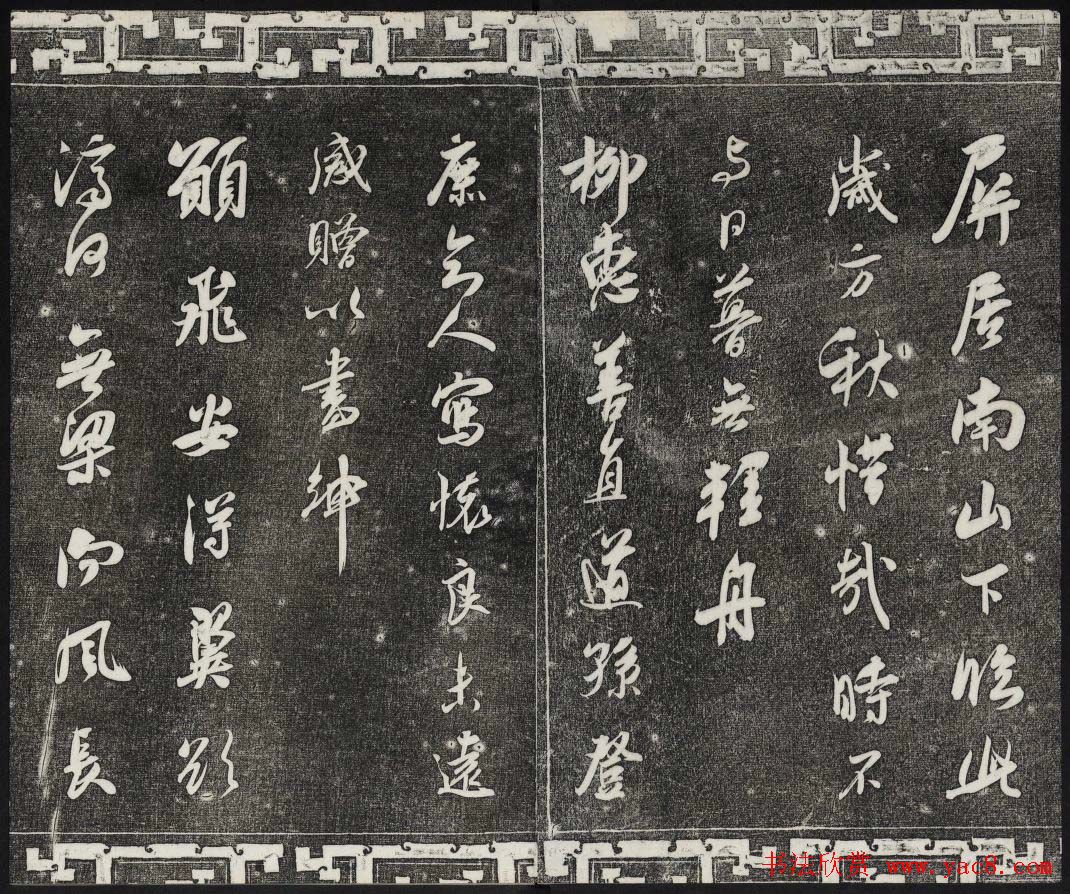 屏居南山下臨此
歲方秋惜哉時不
与日暮無輕舟
柳惠善直道孫登
庶知人寫懷良未遠
感贈以書紳
願飛安得翼欲
濟河無梁向風長
书法欣赏 www.yac8.com